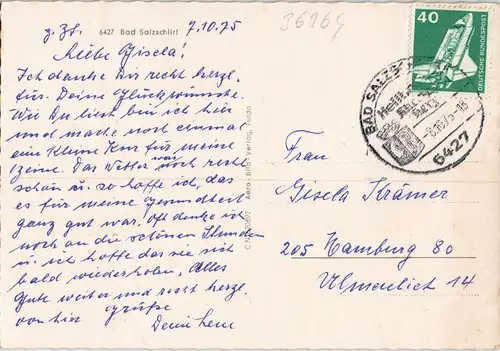 z.Zt. 6427 Bad Salzschlirf 7.10.75
36164
Liebe Gisela!
Ich danke Dir recht herzl.
für Deine Glückwünsche.
Wie Du liest bin ich hier
und mache noch einmal
eine kleine Kur für meine
Beine. Das Wetter war noch recht
schön u. so hoffe ich, das
es für meine Gesundheit
ganz gut war. Oft denke ich
noch an die schönen Stunden
u. ich hoffe das sie sich
bald wiederholen, Alles
Gute weiter und recht herzl.
von hier Grüße
Deine Lene
C N 20/892 Aero-Bild-Verlag, Fulda
40
DEUTSCHE BUNDESPOST
BAD SALZSCHLIRF
-8.10.75-18
6427
Frau
Gisela Krämer
205 Hamburg 80
Ulmenlich 14